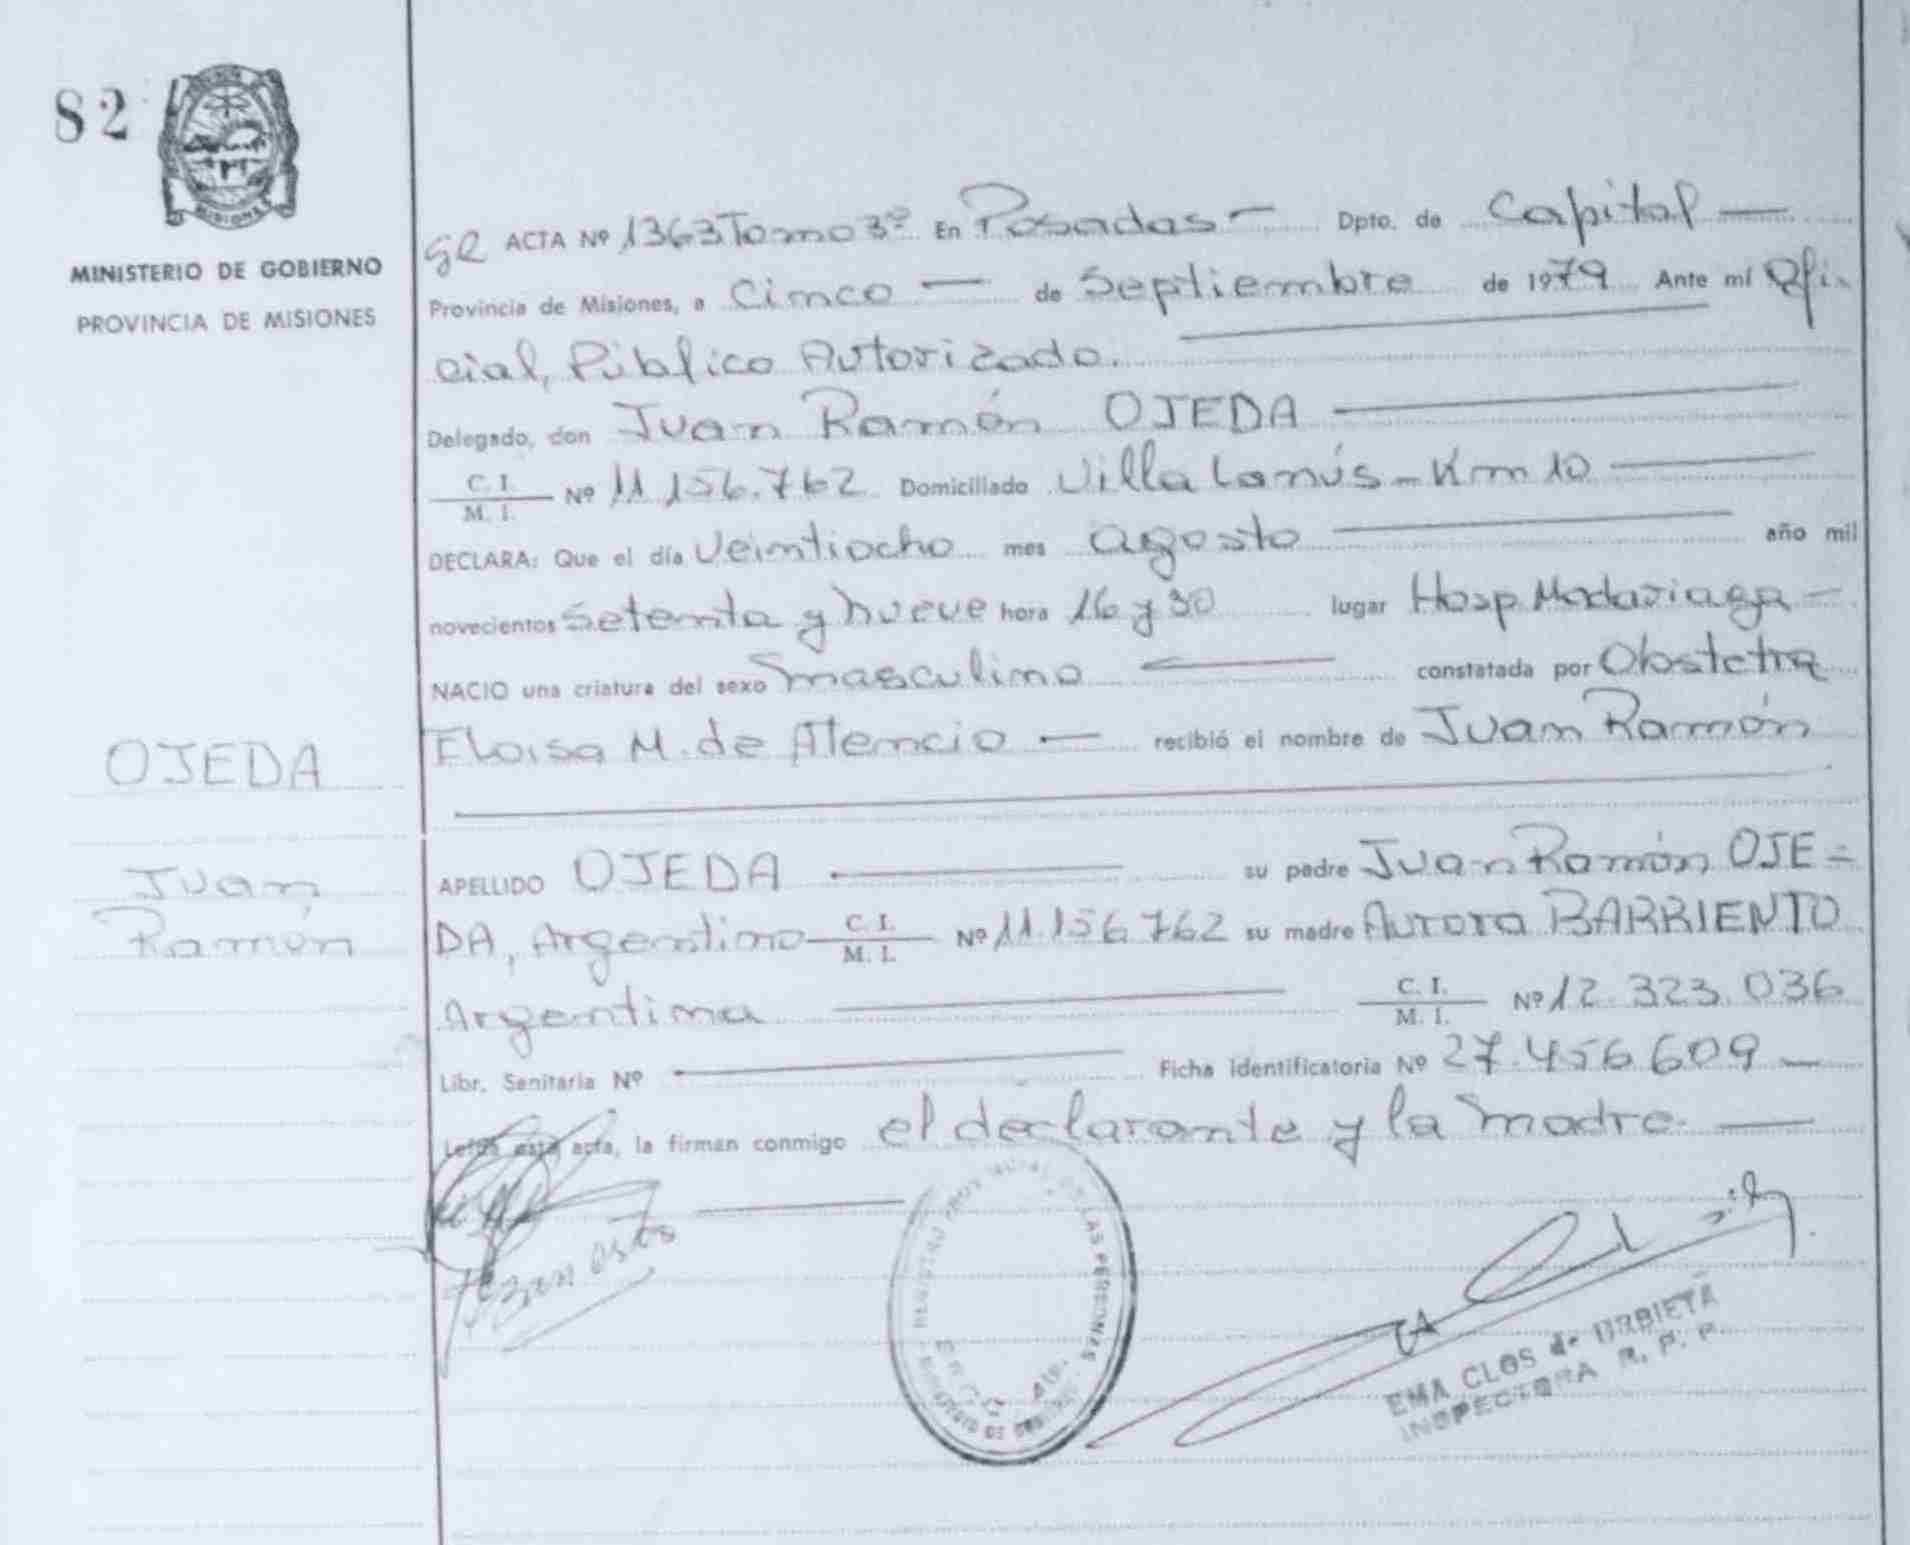 82
MISIONES
MINISTERIO DE GOBIERNO
PROVINCIA DE MISIONES
OJEDA
Juan
Ramón
ACTA Nº 1363 Tomo 3º En Posadas - Dpto. de Capital -
Provincia de Misiones, a Cinco - de Septiembre de 1979 Ante mí Ofi-
cial, Público Autorizado.
Delegado, don Juan Ramón OJEDA
C. I.
M. I. Nº 11.156.762 Domiciliado Villa Lanús - Km 10
DECLARA: Que el día Veintiocho mes agosto año mil
novecientos Setenta y nueve hora 16 y 30 lugar Hosp. Madariaga -
NACIO una criatura del sexo masculino constatada por Obstetra
Eloisa M. de Atencio - recibió el nombre de Juan Ramón
APELLIDO OJEDA su padre Juan Ramón OJE=
DA, Argentino C. I. M. I. Nº 11.156.762 su madre Aurora BARRIENTO
Argentina C. I. M. I. Nº 12.323.036
Libr. Sanitaria Nº Ficha identificatoria Nº 27.456.609 -
Leída esta acta, la firman conmigo el declarante y la madre.
LAS PERSONAS
EMA CLOS de URBIETA
INSPECTORA R. P. P.